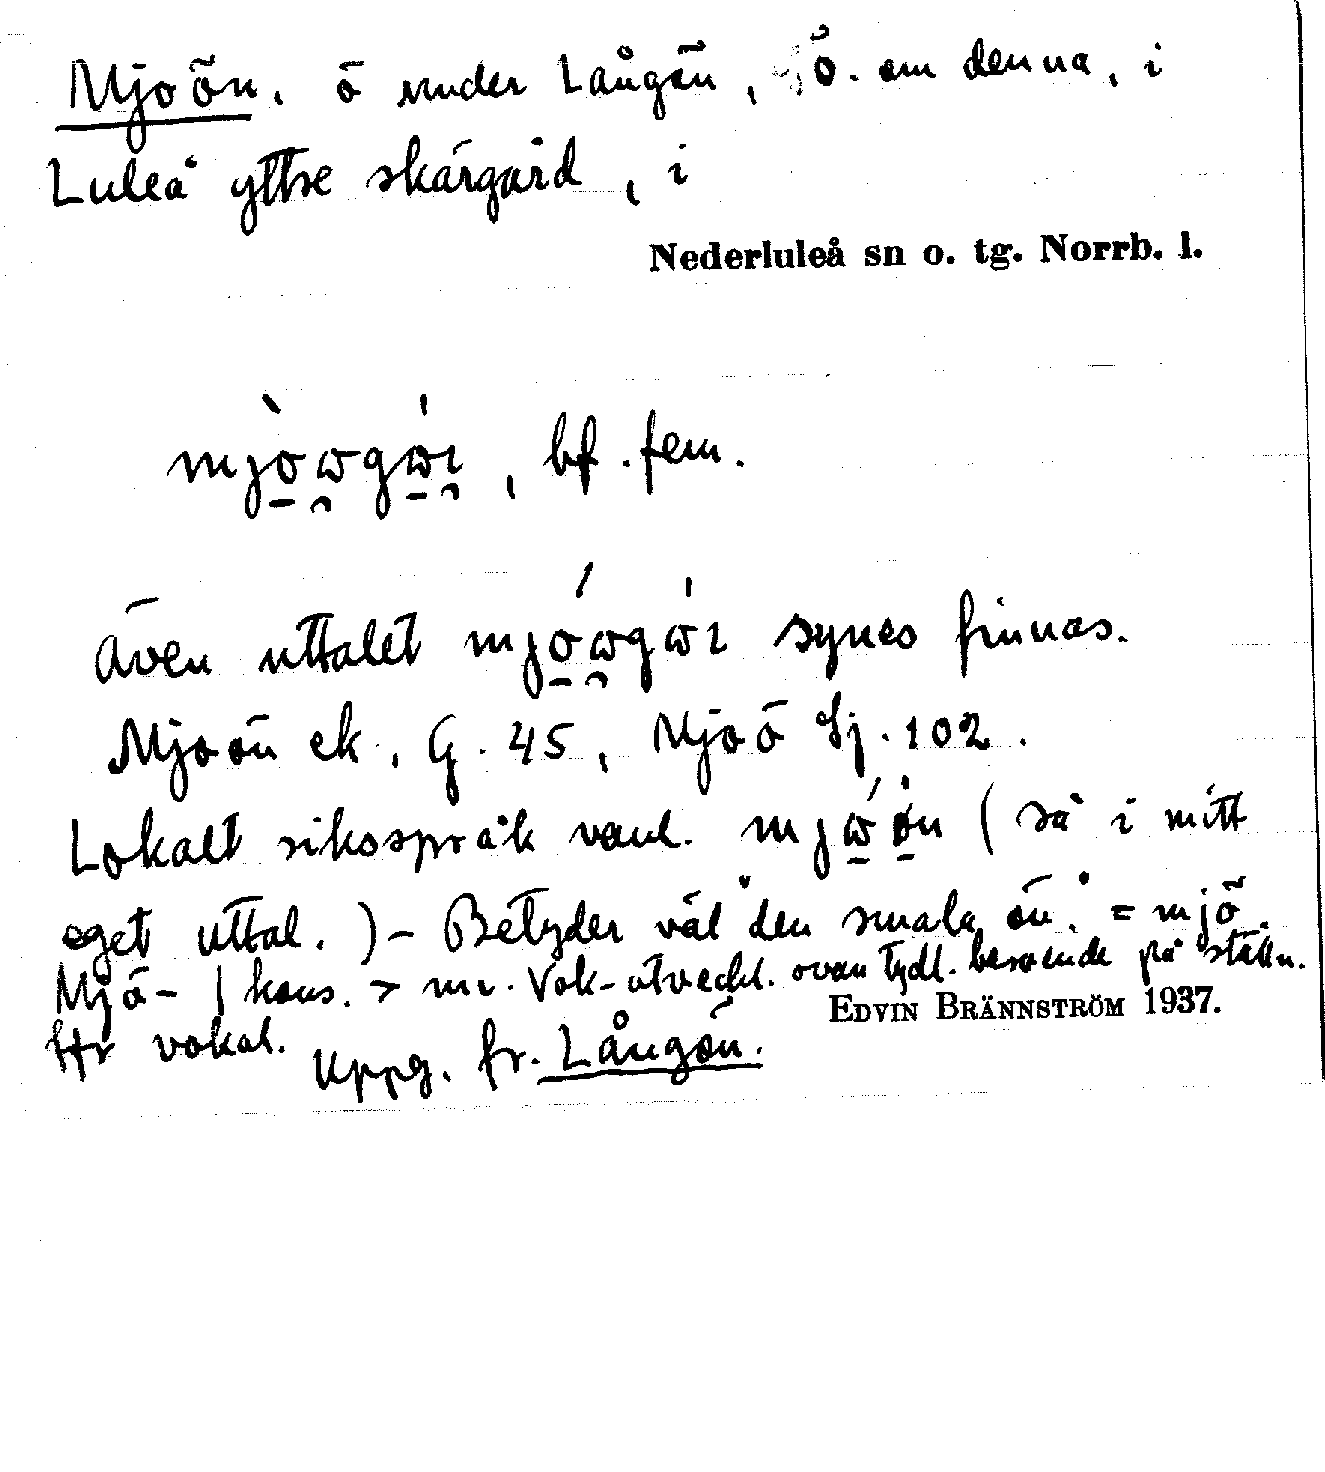 Mjoön. ö under Långön, SO. om denna, i
Luleå yttre skärgård, i
Nederluleå sn o. tg. Norrb. l.
bf. fem.
Även uttalet synes finnas.
Mjoön ek. G. 45, Mjoö Sj. 102.
Lokalt riksspråk vanl. (så i mitt
eget uttal.) – Betyder väl "den smala ön." = mjö
Mjö- kons. > Vok-utveckl. ovan tydl. beroende på ställn.
vokal.
Uppg. fr. Långön.
EDVIN BRÄNNSTRÖM 1937.